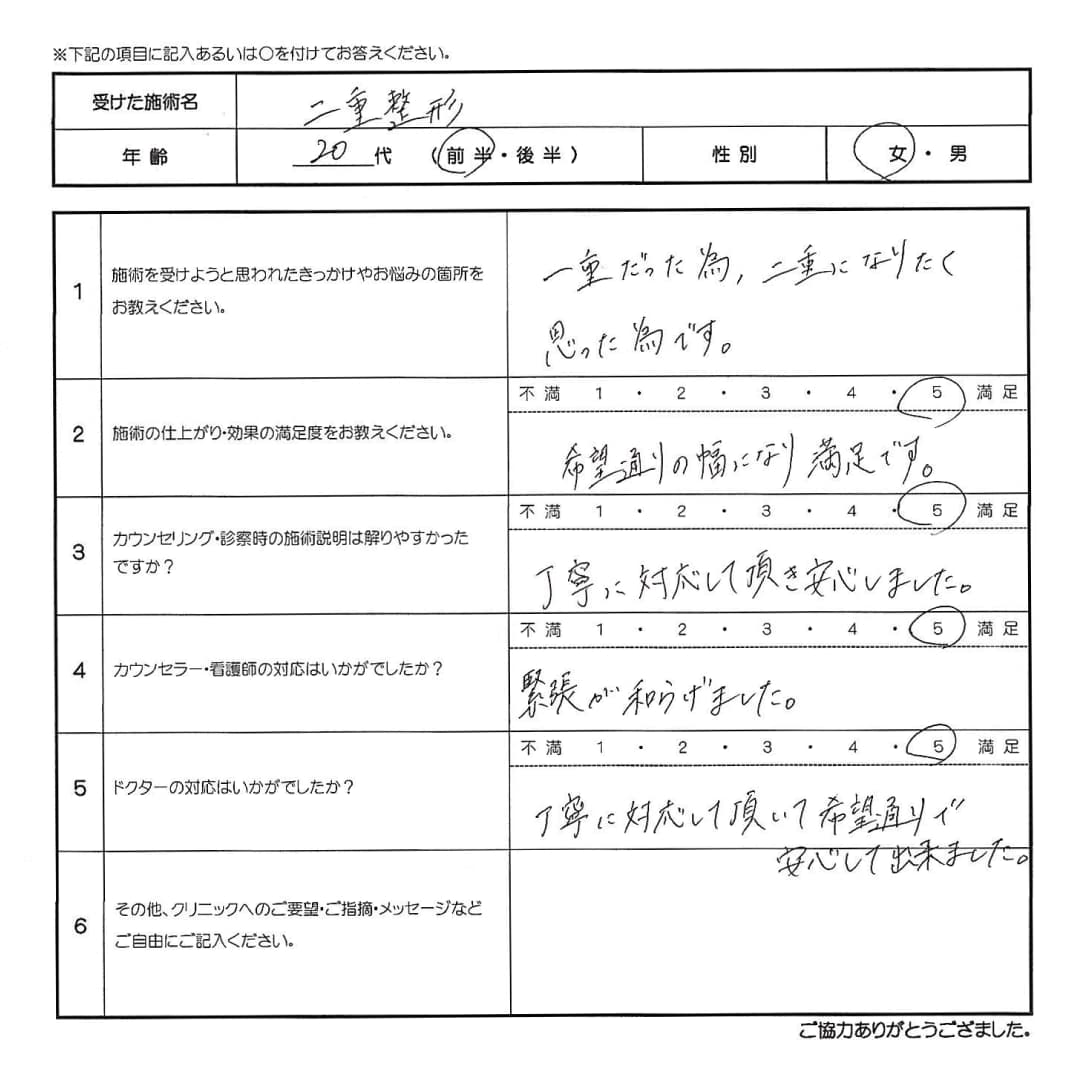 ※下記の項目に記入あるいは〇を付けてお答えください。
受けた施術名 二重整形
年齢 20代 (前半・後半) 性別 女・男
1 施術を受けようと思われたきっかけやお悩みの箇所を
お教えください。
一重だった為、二重になりたく
思った為です。
2 施術の仕上がり・効果の満足度をお教えください。
不満 1・2・3・4・5 満足
希望通りの幅になり満足です。
3 カウンセリング・診察時の施術説明は解りやすかった
ですか？
不満 1・2・3・4・5 満足
丁寧に対応して頂き安心しました。
4 カウンセラー・看護師の対応はいかがでしたか？
不満 1・2・3・4・5 満足
緊張が和らげました。
5 ドクターの対応はいかがでしたか？
不満 1・2・3・4・5 満足
丁寧に対応して頂いて希望通りで
安心して出来ました。
6 その他、クリニックへのご要望・ご指摘・メッセージなど
ご自由にご記入ください。
ご協力ありがとうござました。